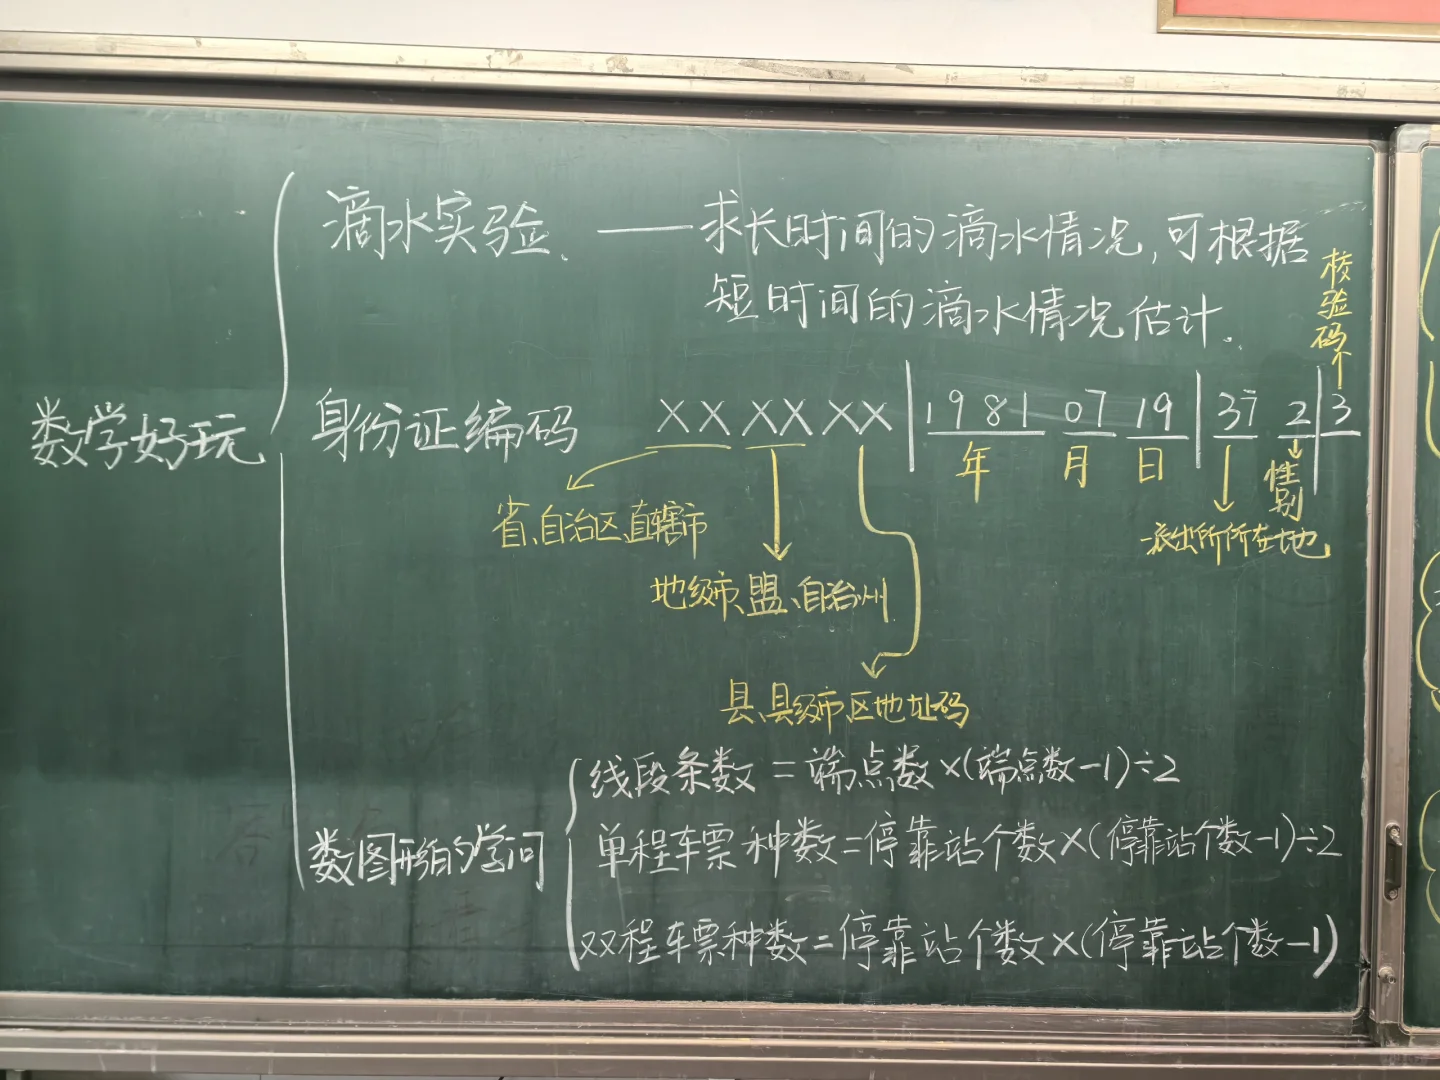 数学好玩
滴水实验 —— 求长时间的滴水情况,可根据
短时间的滴水情况估计.
身份证编码 XX XX XX | 1981 07 19 | 37 2 | 3
校验码
年 月 日
性别
派出所所在地
省、自治区、直辖市
地级市、盟、自治州
县、县级市区地址码
数图形的学问
线段条数=端点数×(端点数-1)÷2
单程车票种数=停靠站个数×(停靠站个数-1)÷2
双程车票种数=停靠站个数×(停靠站个数-1)